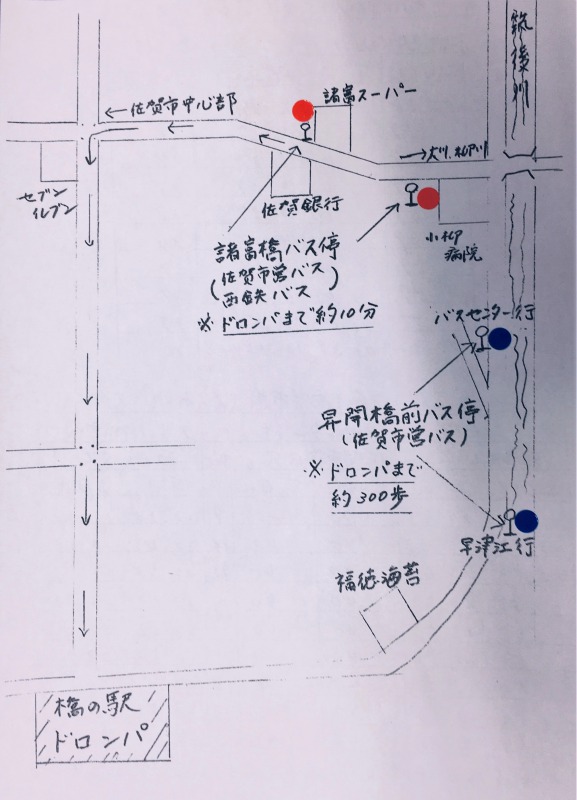 筑後川
諸富スーパー
←佐賀市中心部
→大川、柳川
セブン
イレブン
佐賀銀行
小柳
病院
諸富橋バス停
(佐賀市営バス
西鉄バス)
※ドロンパまで約10分
バスセンター行
昇開橋前バス停
(佐賀市営バス)
※ドロンパまで
約300歩
早津江行
福徳海苔
橋の駅
ドロンパ